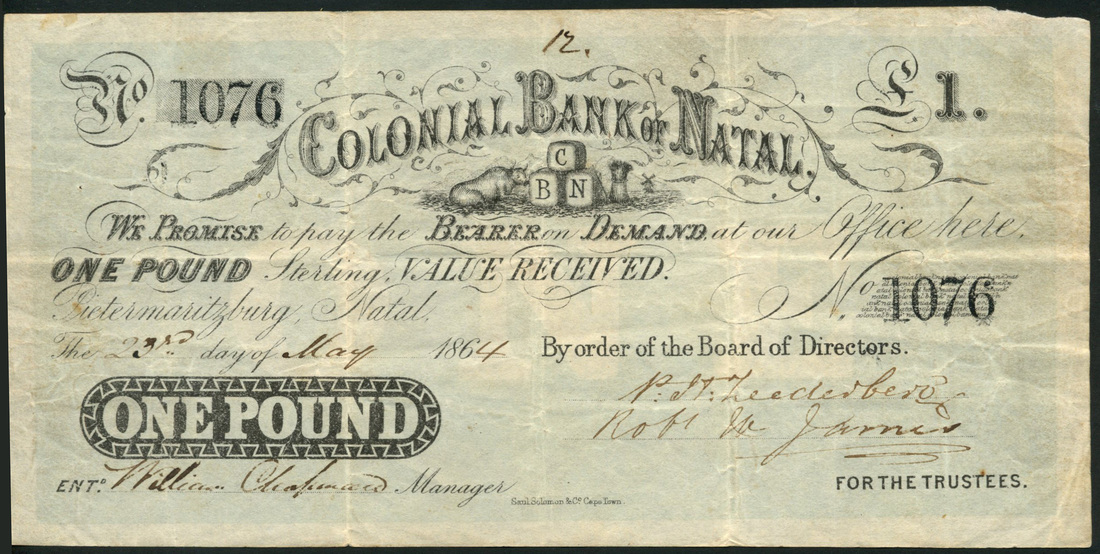 12.
No. 1076
£1.
COLONIAL BANK OF NATAL.
C
B N
WE PROMISE to pay the BEARER on DEMAND, at our Office here,
ONE POUND Sterling, VALUE RECEIVED.
No. 1076
Pietermaritzburg, Natal.
The 23rd day of May 1864
By order of the Board of Directors.
ONE POUND
P. H. Zeederberg
Robt W James
ENTD. William Chapman Manager
FOR THE TRUSTEES.
Saul Solomon & Co. Cape Town.